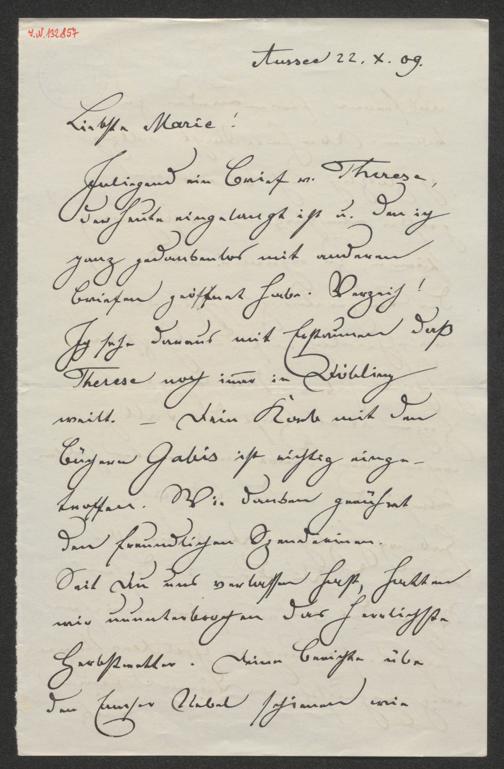 H.N. 132857
Aussee 22. X. 09.
Liebste Marie!
Inliegend ein Brief v. Therese,
der heute eingelangt ist u. den ich
ganz gedankenlos mit anderen
Briefen geöffnet habe. Verzeih!
Ich sehe daraus mit Erstaunen daß
Therese noch immer in Döbling
weilt. – Dein Korb mit den
Büchern Gabis ist richtig einge-
troffen. Wir danken gerührt
den freundlichen Spenderinen.
Seit Du uns verlassen hast, hatten
wir ununterbrochen das herrlichste
Herbstwetter. Deine Berichte über
den Nebel schienen wie